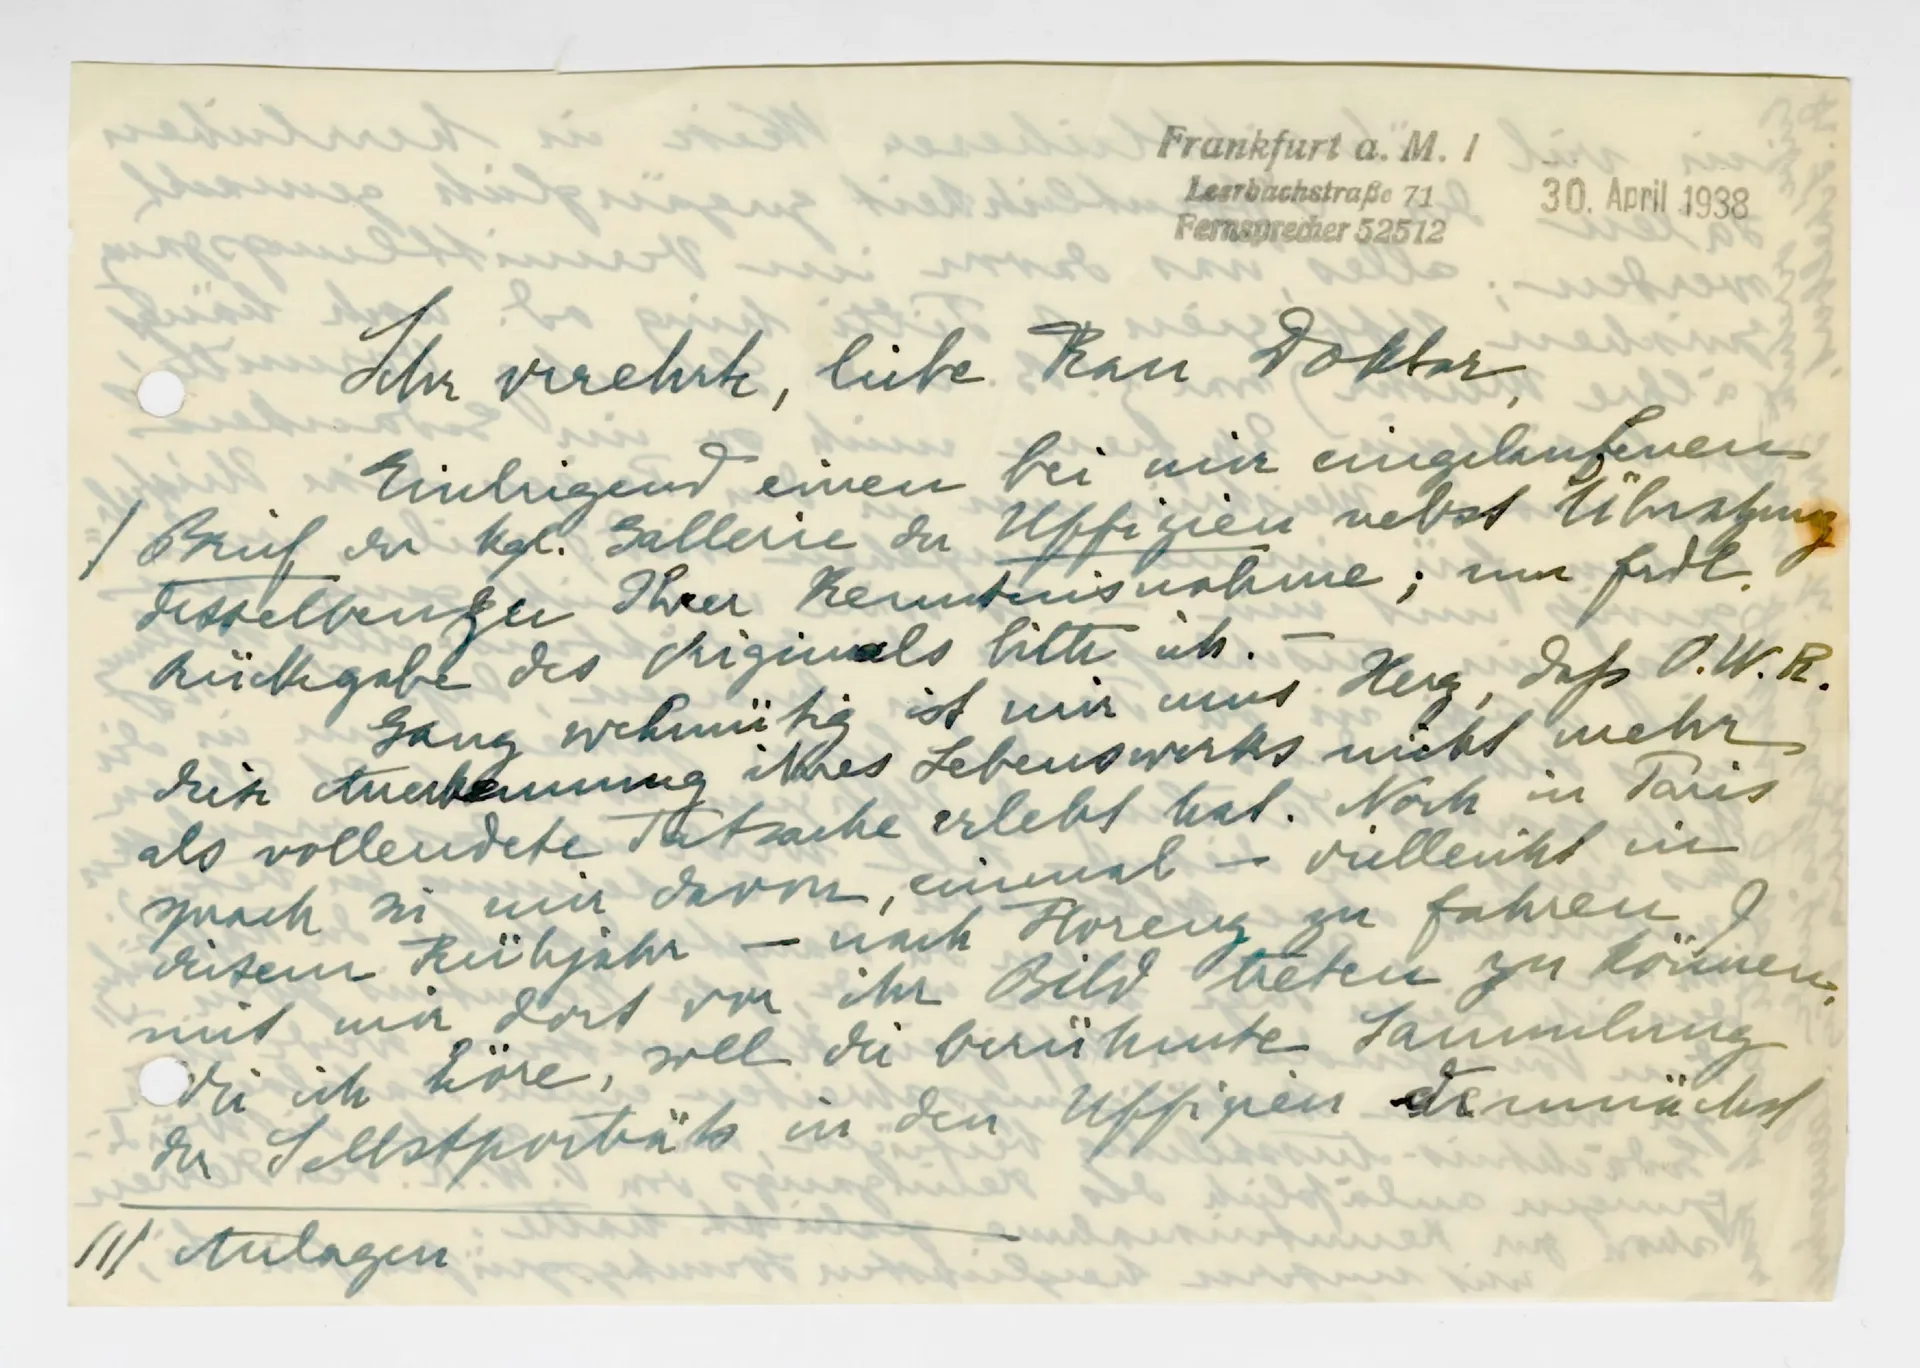 Frankfurt a. M. 1
Leerbachstraße 71
Fernsprecher 52512
30. April 1938
Sehr verehrte, liebe Frau Doktor,
Einliegend einen bei mir eingelaufenen
/ Brief der kgl. Gallerie der Uffizien nebst Übersetzung
desselben zu Ihrer Kenntnisnahme; um frdl.
Rückgabe des Originals bitte ich. –
Ganz wehmütig ist mir ums Herz, daß O.W.R.
diese Anerkennung ihres Lebenswerks nicht mehr
als vollendete Tatsache erlebt hat. Noch in Paris
sprach sie mir davon, einmal – vielleicht in
diesem Frühjahr – nach Florenz zu fahren &
mit mir dort vor ihr Bild treten zu können.
die ich höre, soll die berühmte Sammlung
der Selbstporträts in den Uffizien demnächst
/// Anlagen